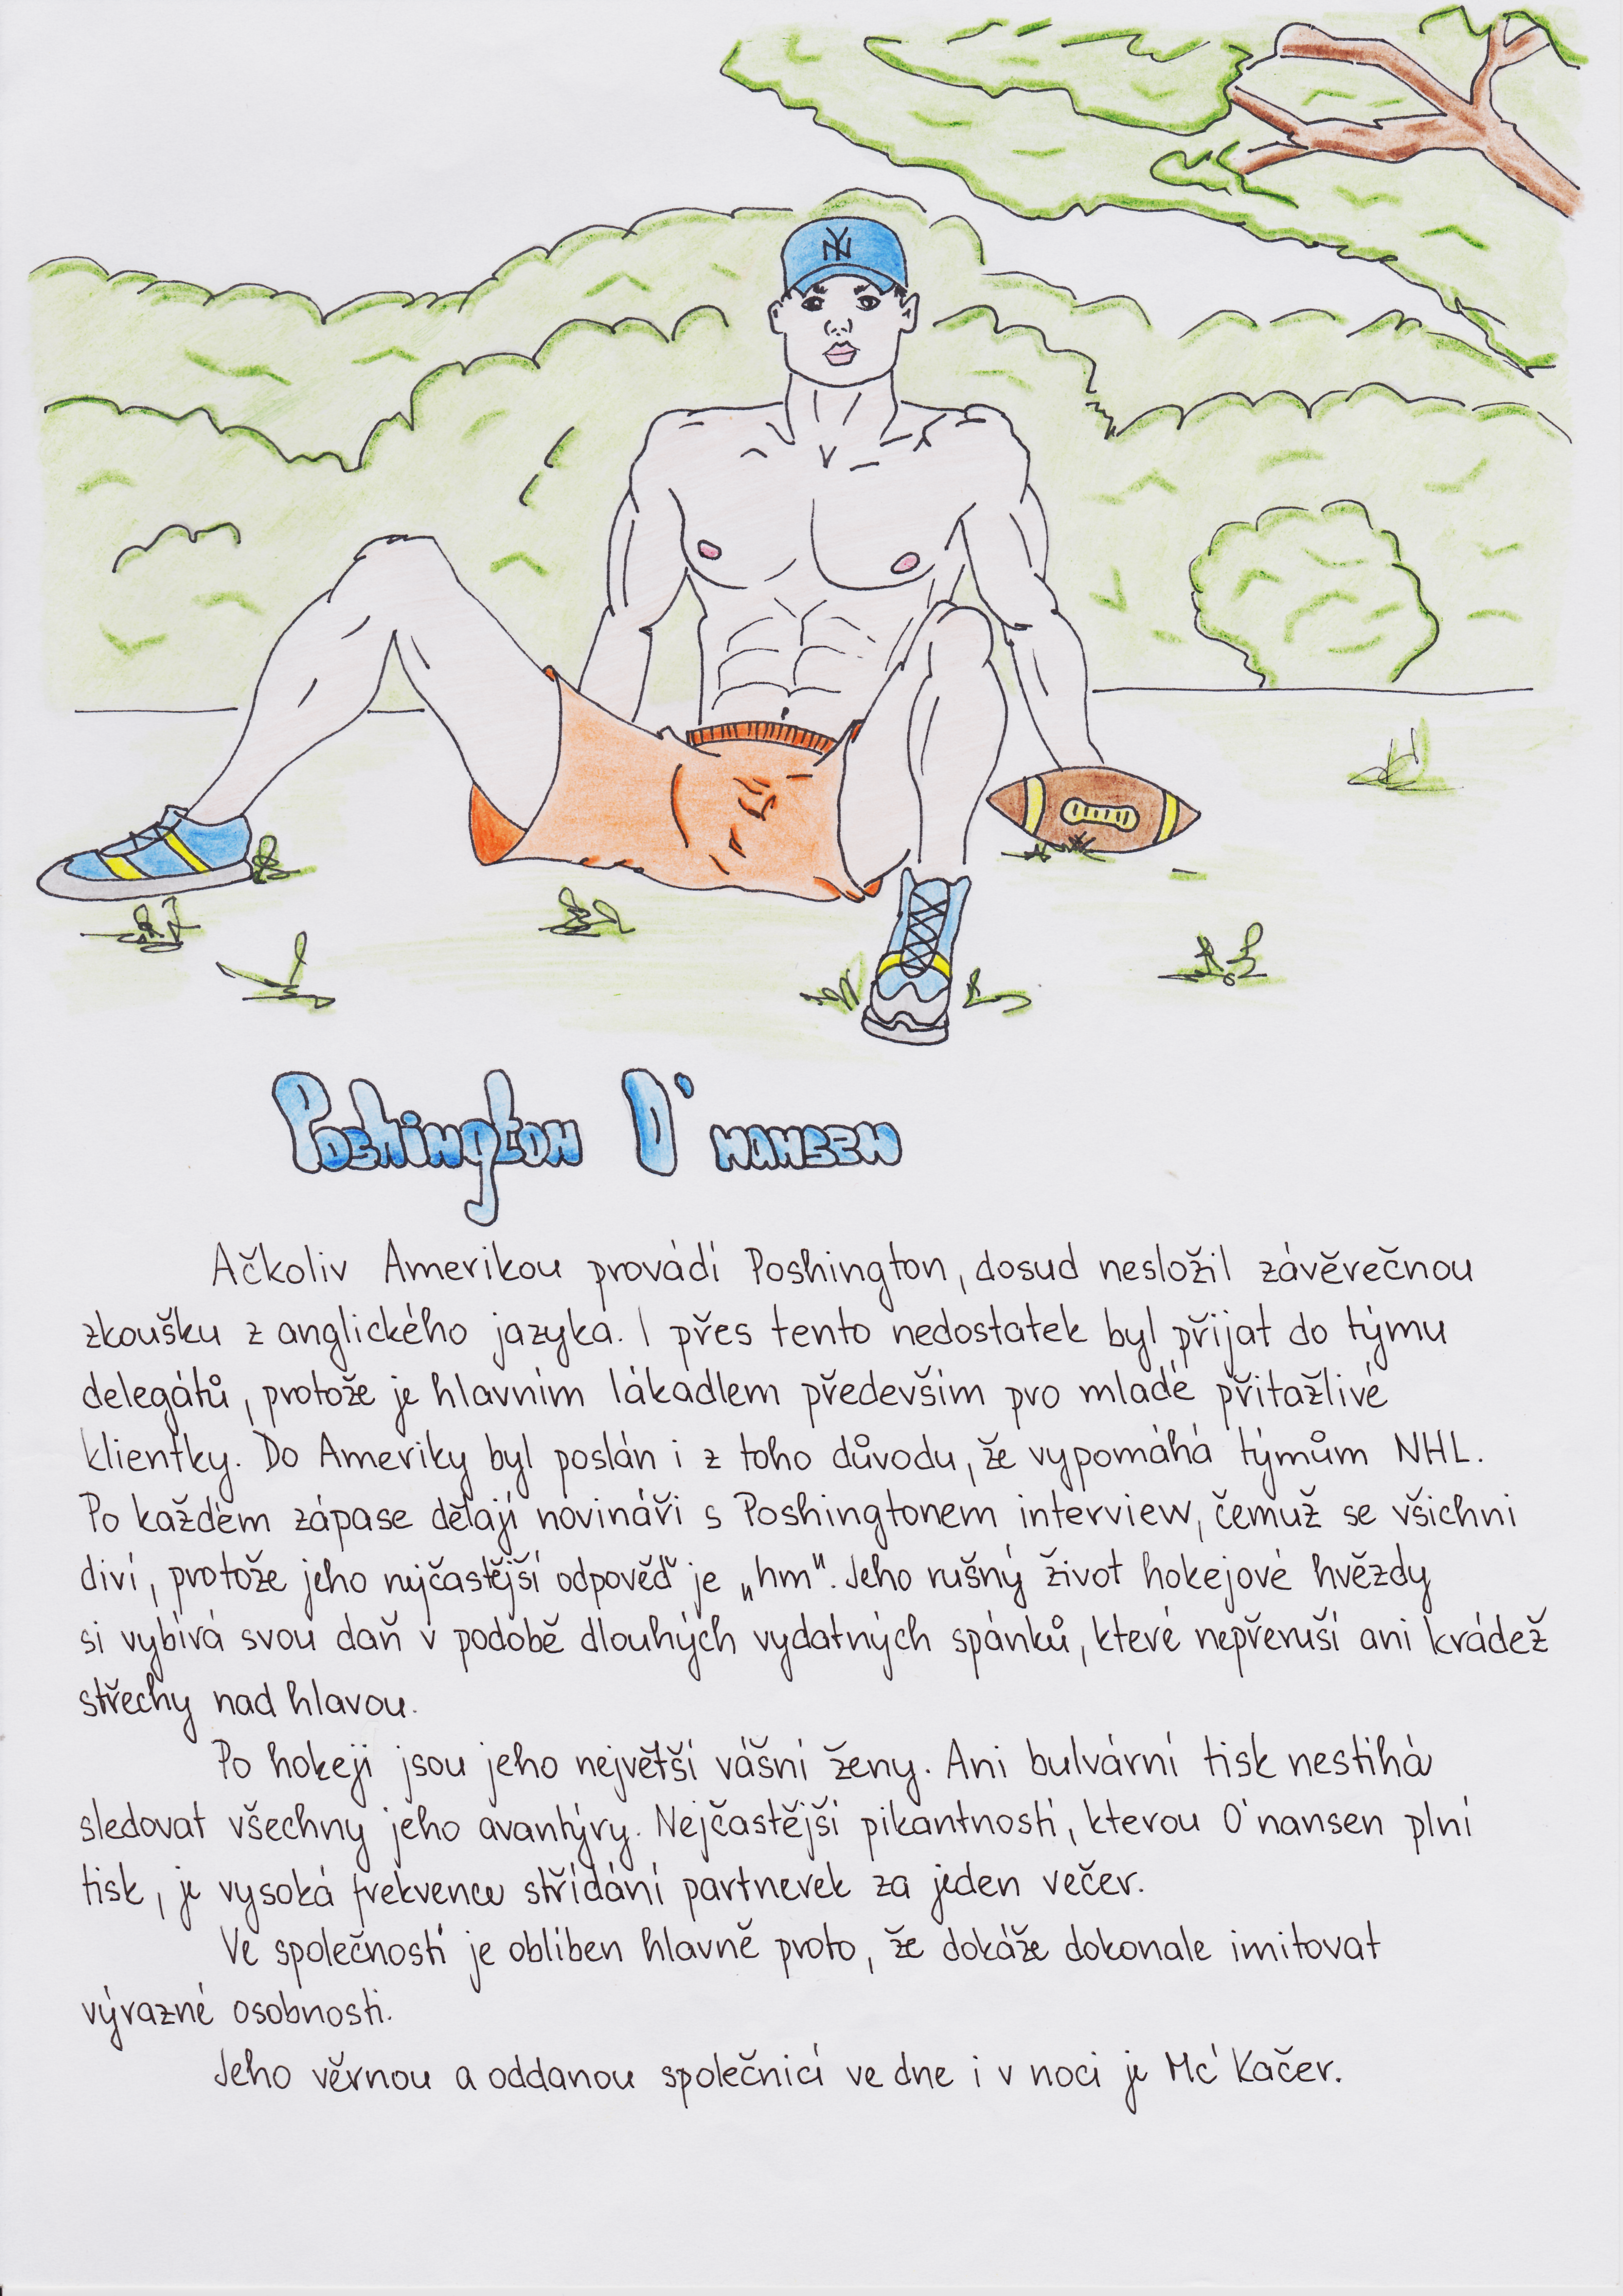 NY
Poshington O'nansen
Ačkoliv Amerikou provádí Poshington, dosud nesložil závěrečnou
zkoušku z anglického jazyka. I přes tento nedostatek byl přijat do týmu
delegátů, protože je hlavním lákadlem především pro mladé přitažlivé
klientky. Do Ameriky byl poslán i z toho důvodu, že vypomáhá týmům NHL.
Po každém zápase dělají novináři s Poshingtonem interview, čemuž se všichni
diví, protože jeho nejčastější odpověď je „hm". Jeho rušný život hokejové hvězdy
si vybírá svou daň v podobě dlouhých vydatných spánků, které nepřeruší ani krádež
střechy nad hlavou.
Po hokeji jsou jeho největší vášní ženy. Ani bulvární tisk nestíhá
sledovat všechny jeho avantýry. Nejčastější pikantností, kterou O'nansen plní
tisk, je vysoká frekvence střídání partnerek za jeden večer.
Ve společnosti je oblíben hlavně proto, že dokáže dokonale imitovat
výrazné osobnosti.
Jeho věrnou a oddanou společnicí ve dne i v noci je Mc'Kačer.